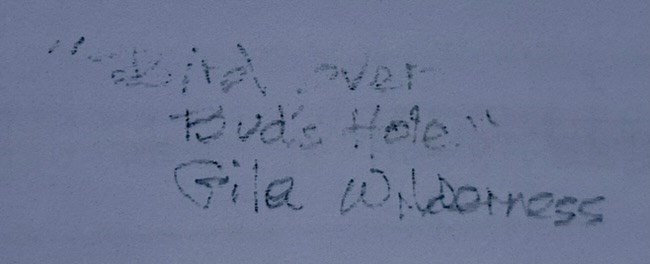 "Bird over
Bud's Hole."
Gila Wilderness